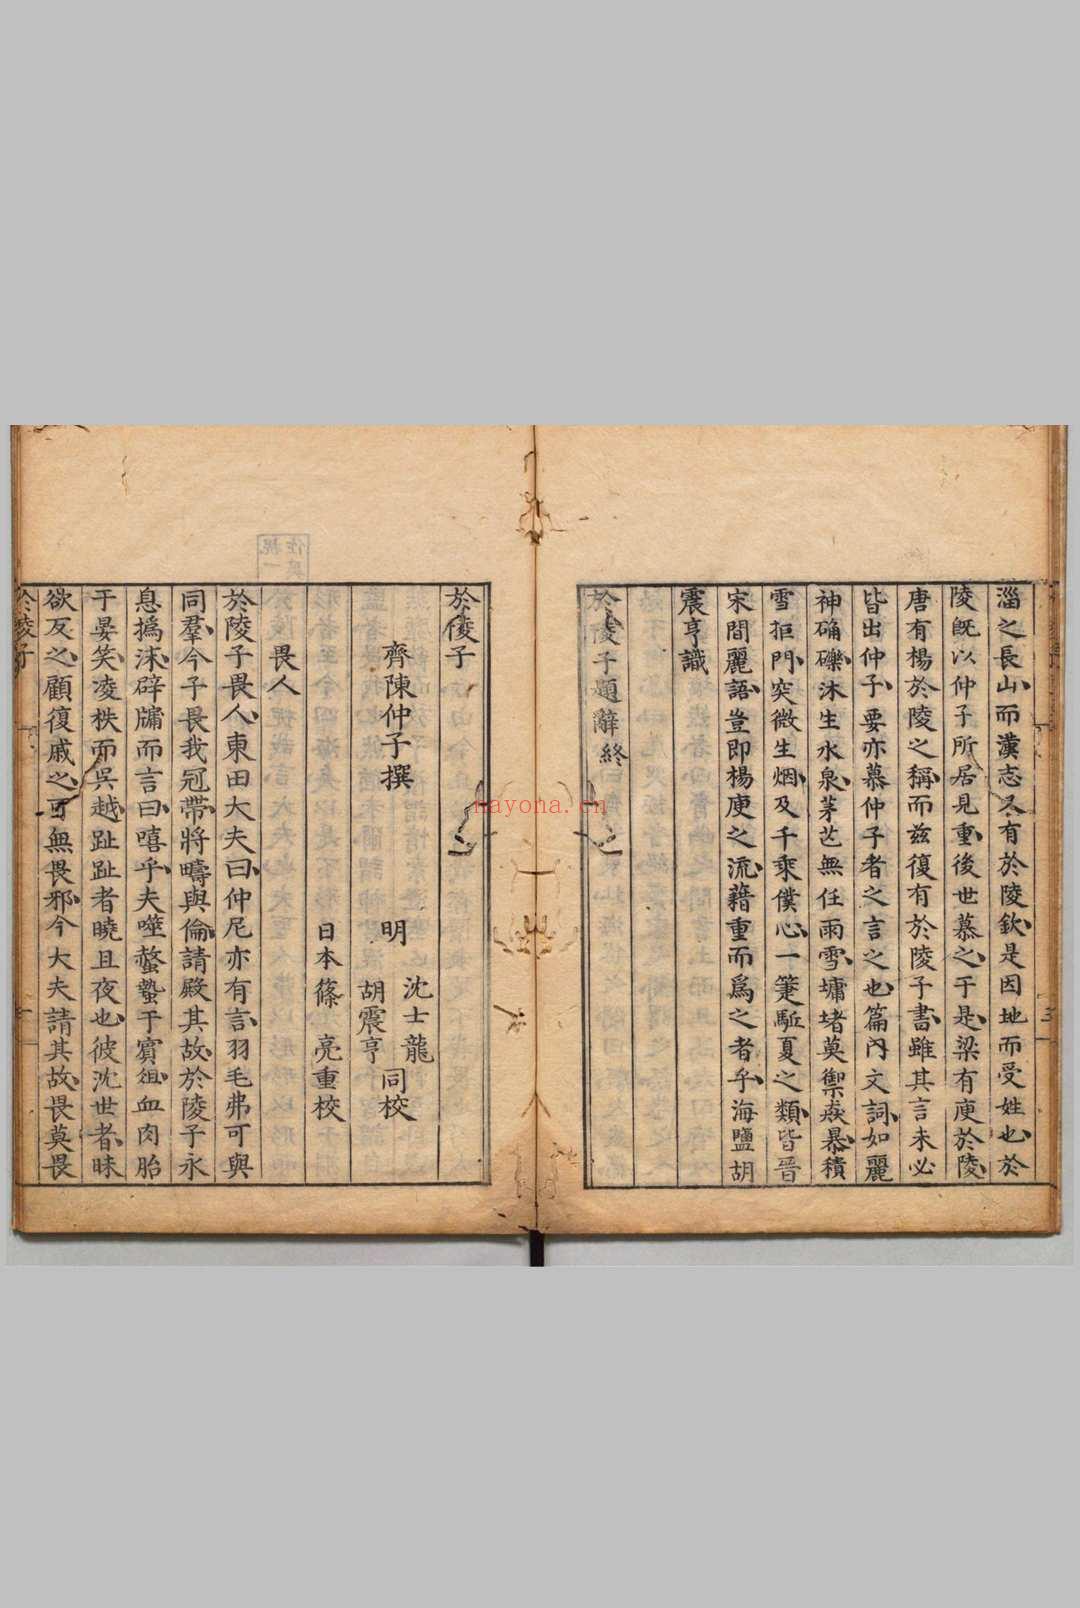 淄之長山而漢志又有於陵欽是因地而受姓也於
陵旣以仲子所居見重後世慕之于是梁有庾於陵
唐有楊於陵之稱而玆復有於陵子書雖其言未必
皆出仲子要亦慕仲子者之言之也篇內文詞如麗
神确礫沐生水泉茅芒無任雨雪墉堵莫禦疾暴積
雪拒門突微生烟及千乘僕心一箑駈夏之類皆晉
宋間麗語豈即楊庾之流藉重而爲之者乎海鹽胡
震亨識
於陵子題辭終
於陵子
齊陳仲子撰
明 沈士龍 胡震亨 同校
日本篠 亮重校
畏人
於陵子畏人東田大夫曰仲尼亦有言羽毛弗可與
同羣今子畏我冠帶將疇與倫請殿其故於陵子永
息撝沫辟牖而言曰嘻乎夫噬螫蟄于賓俎血肉胎
于晏笑凌柣而吳越趾趾者曉且夜也彼沈世者昧
欲反之顧復戚之可無畏邪今大夫請其故畏莫畏
於陵子
nayona.cn